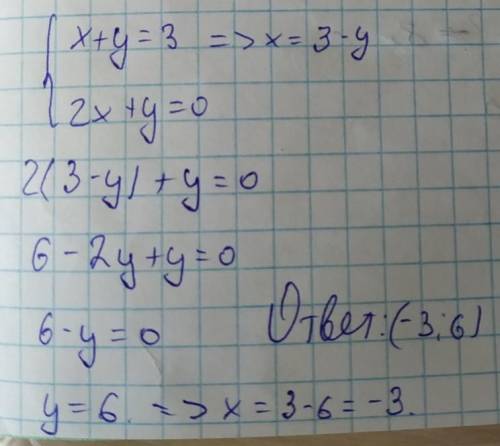 x+y=3 => x=3-y
2x+y=0
2(3-y)+y=0
6-2y+y=0
6-y=0 Ответ: (-3;6)
y=6. => x=3-6=-3.